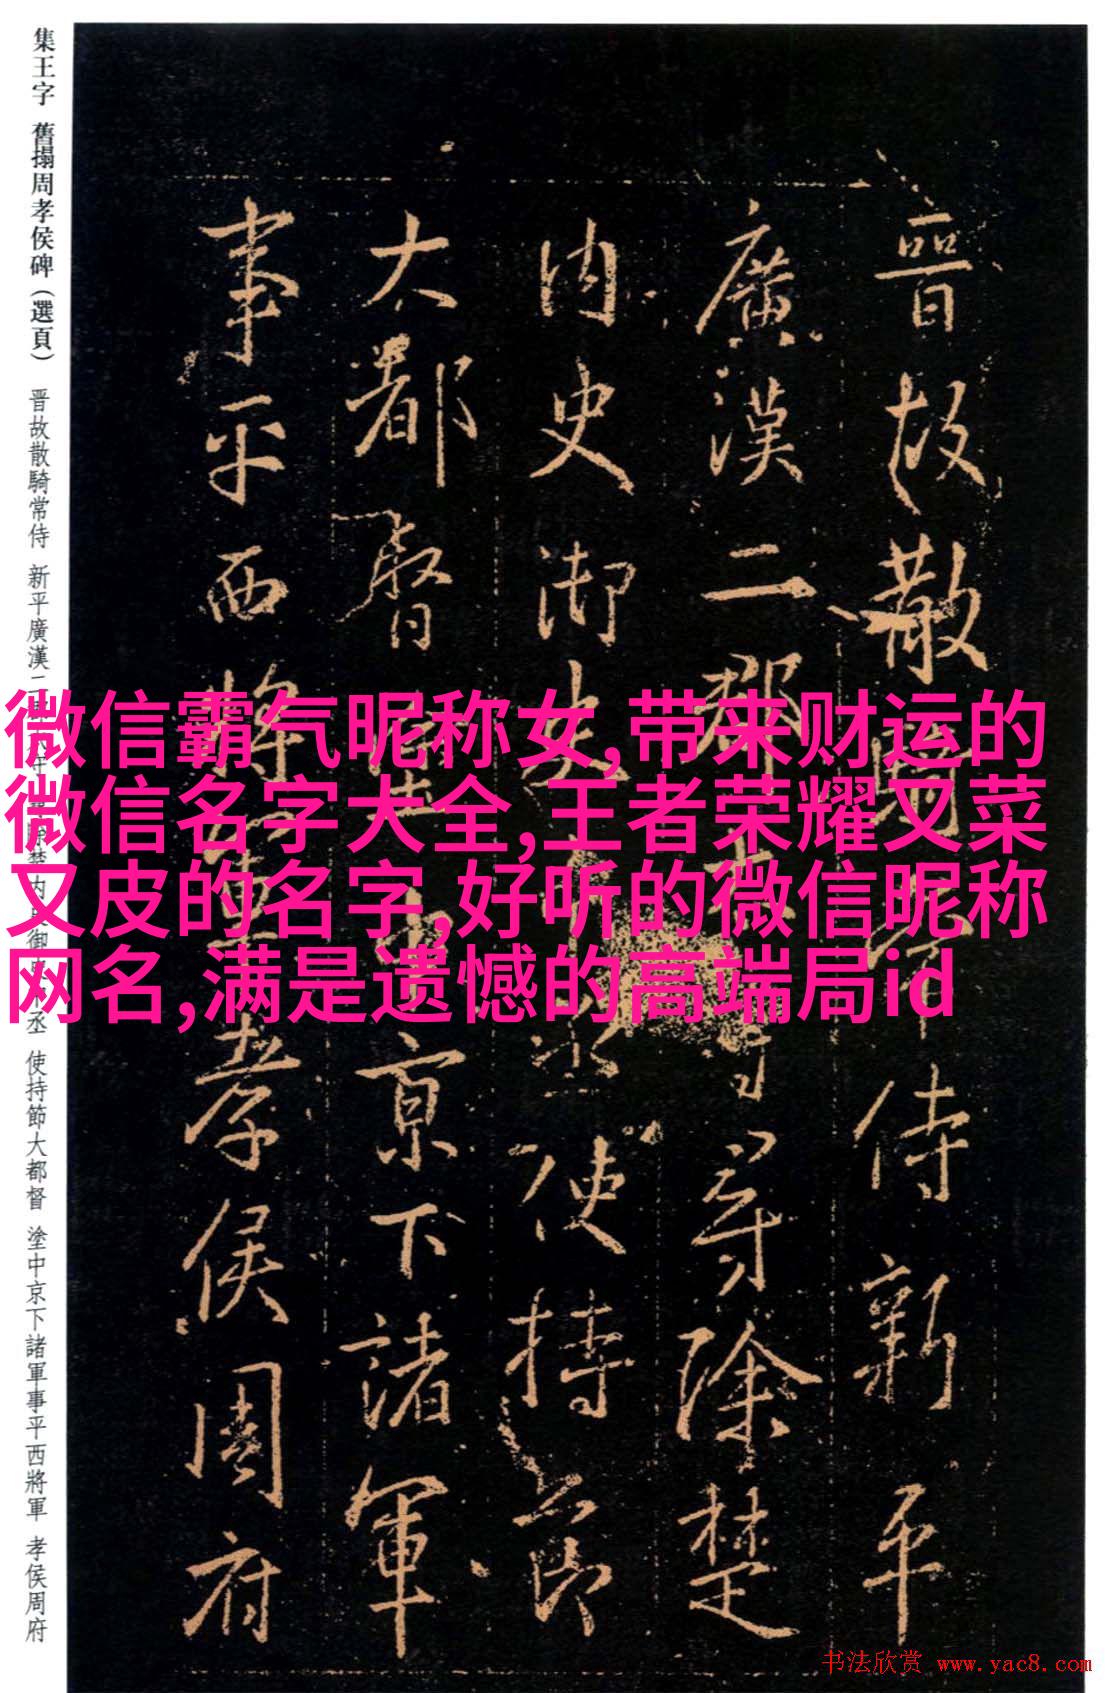 集王字 舊搨周孝侯碑（選頁） 晋故散騎常侍 新平廣漢二 御 丞 使持節大都督 塗中京下諸軍事平西將軍 孝侯周府
晉故散 侍新平
廣漢二郡 尋除楚
内史御史 丞使持節
大都督 京下諸軍
事平西將 孝侯周府
微信霸气昵称女,带来财运的
微信名字大全,王者荣耀又菜
又皮的名字,好听的微信昵称
网名,满是遗憾的高端局id
书法欣赏 www.yac8.com